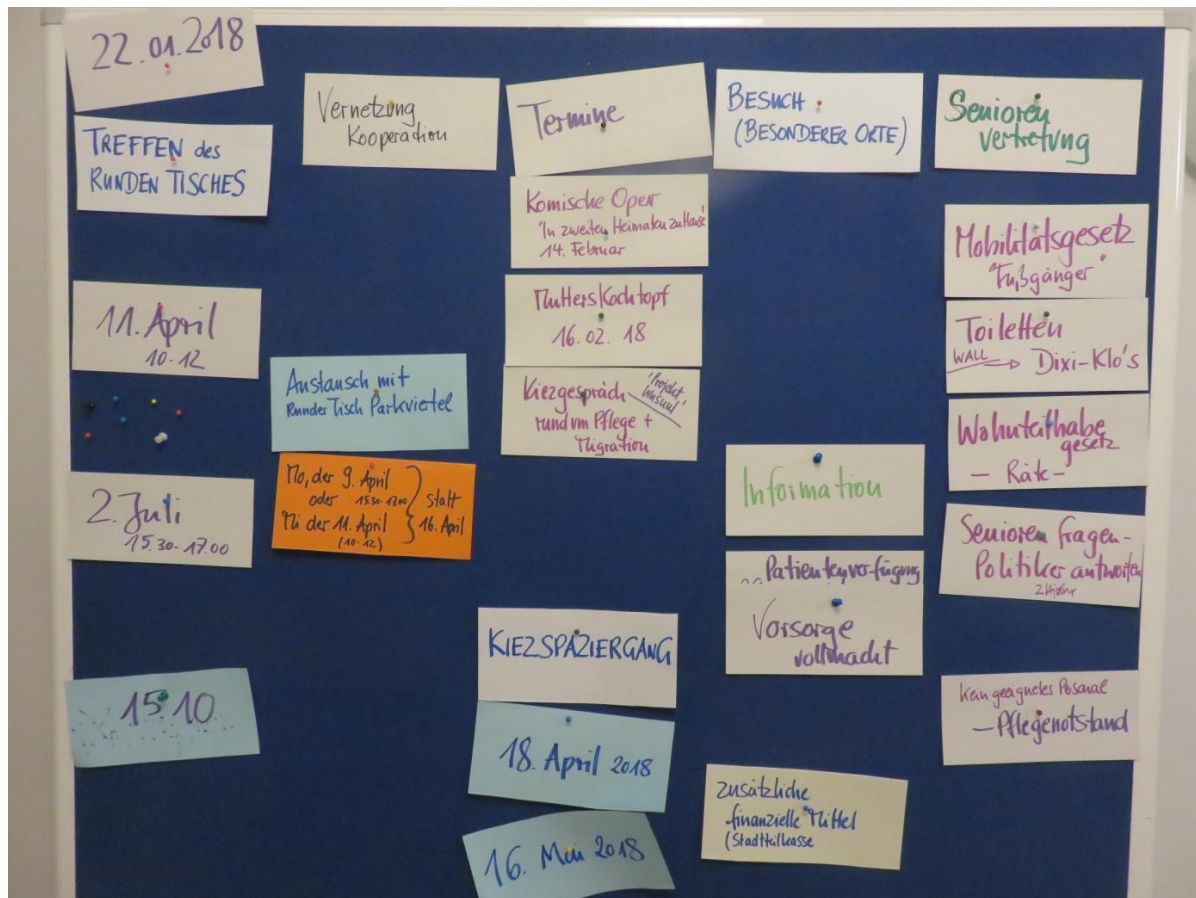 22.01.2018
TREFFEN des
RUNDEN TISCHES
11. April
10-12
2. Juli
15.30-17.00
15 10
Vernetzung
Kooperation
Austausch mit
Runder Tisch Parkviertel
Mo, der 9. April
oder 15.30-17.00
Mi der 11. April
(10-12)
statt
16. April
Termine
Komische Oper
"In zweiten Heimaten zuHause"
14. Februar
Mutters Kochtopf
16.02.18
Kiezgespräch
rund um Pflege +
Migration
"Projekt"
KIEZSPAZIERGANG
18. April 2018
16. Mai 2018
BESUCH
(BESONDERER ORTE)
Information
Patientenverfügung
Vorsorge
vollmacht
zusätzliche
finanzielle Mittel
(Stadtteilkasse
Senioren
vertretung
Mobilitätsgesetz
"Fußgänger"
Toiletten
WALL → Dixi-Klo's
Wohnteilhabe
gesetz
- Räte -
Senioren fragen-
Politiker antworten
Kein geeignetes Posonal
- Pflegenotstand